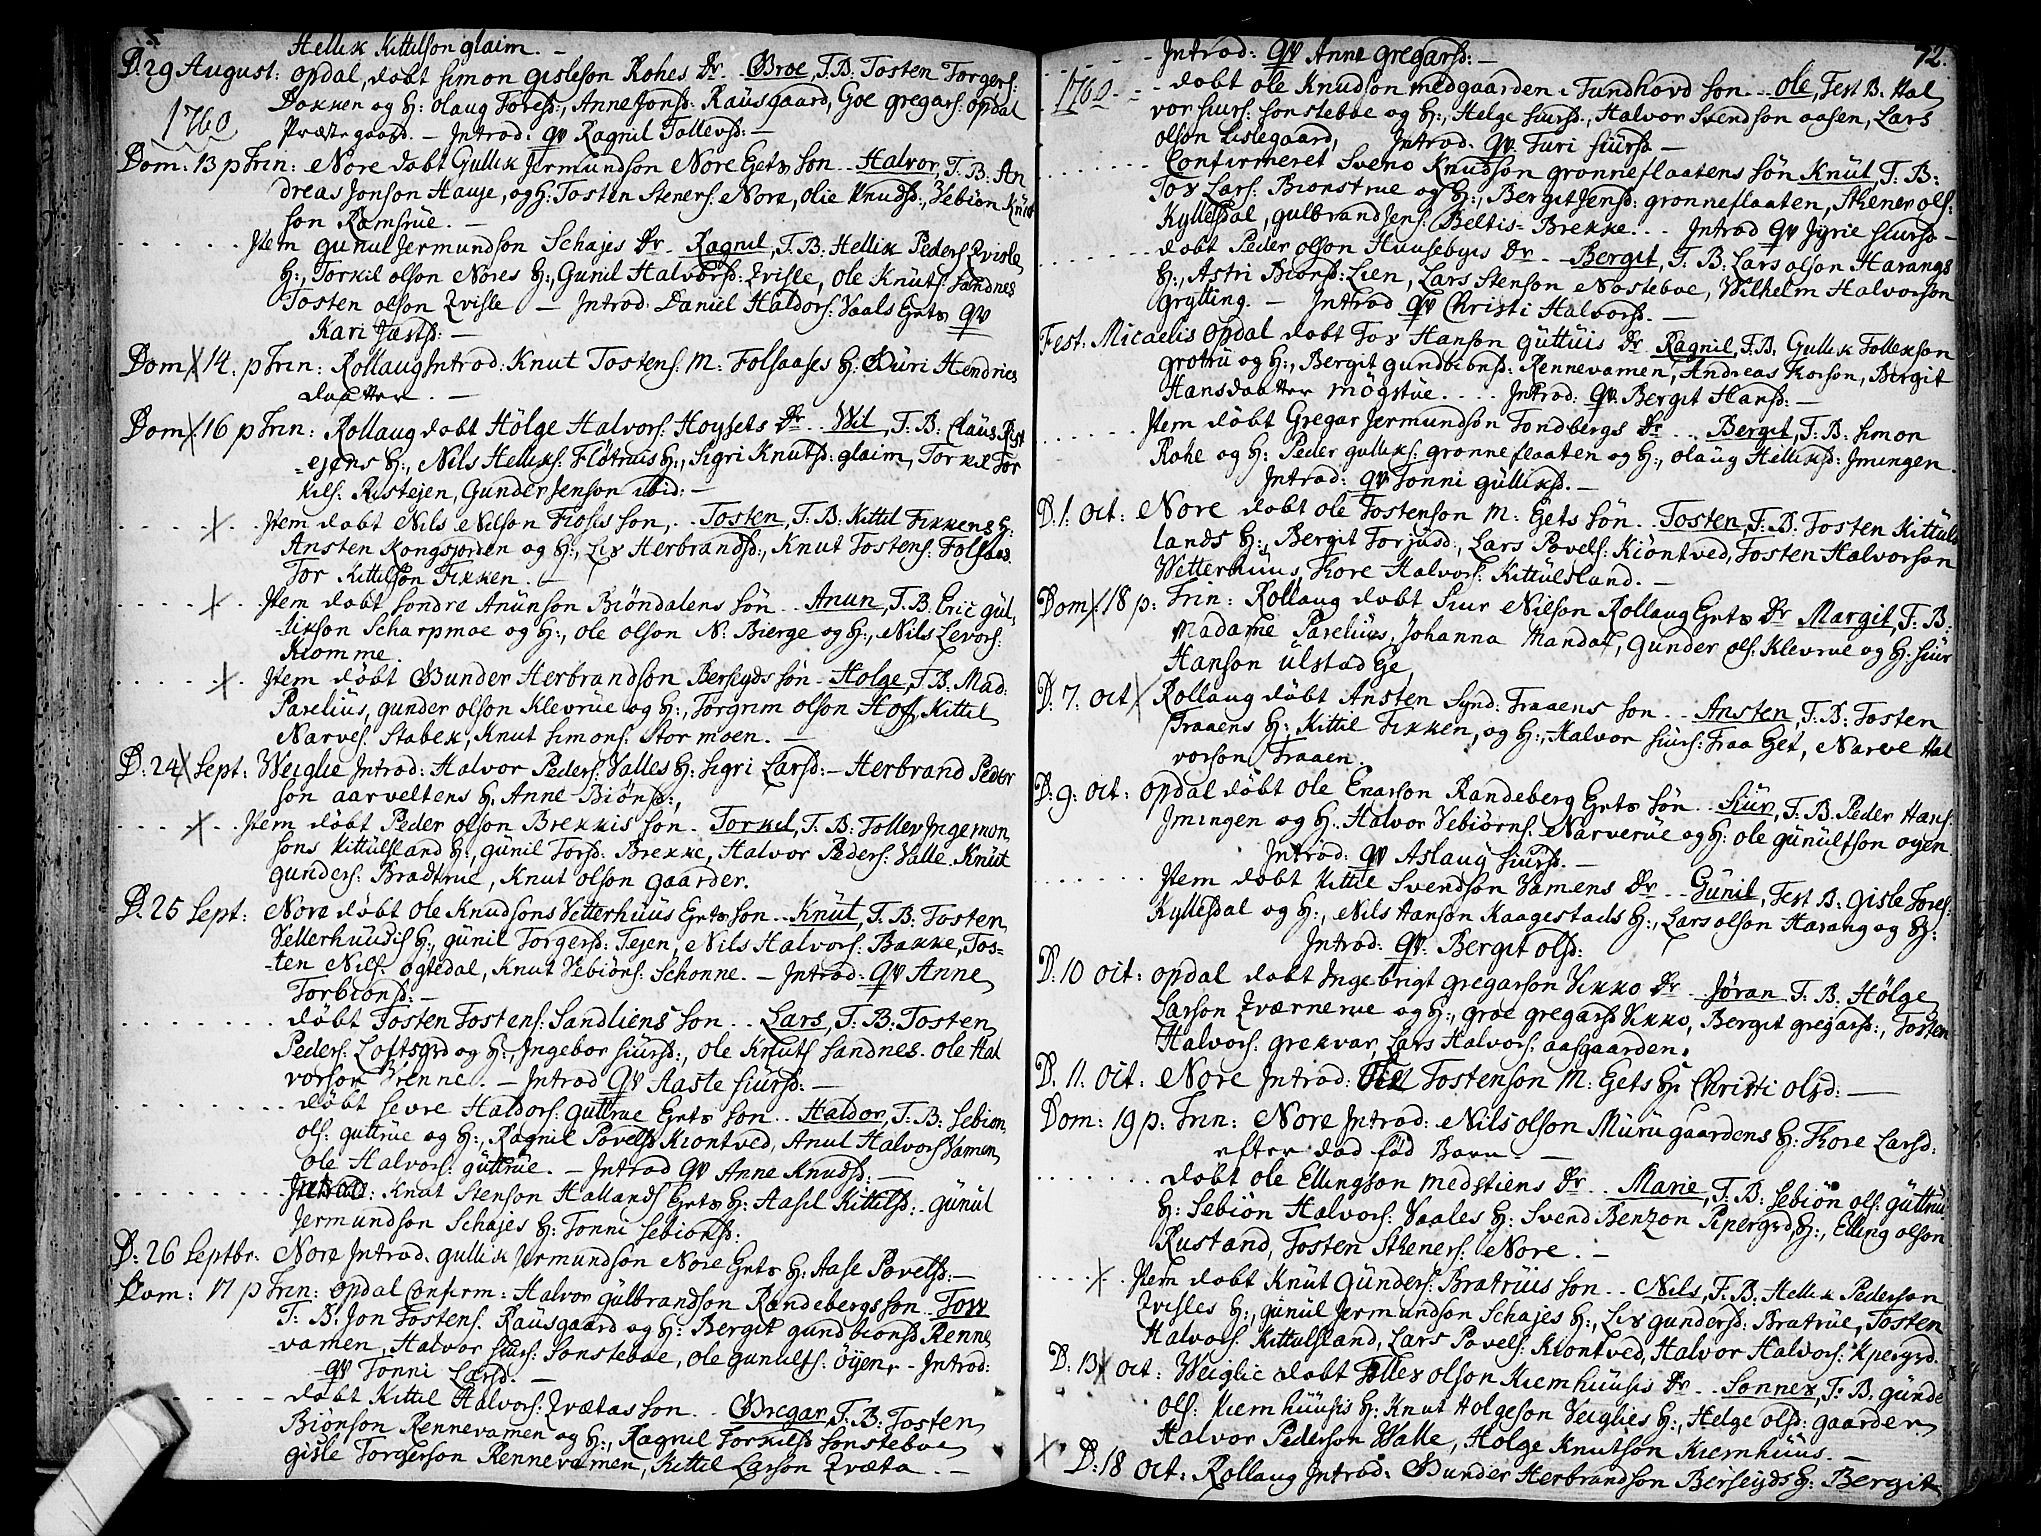 Hellik Kittilson glaim. —
D. 29 August: opdal, døbt Simon Gisleson Rohes Dr. Groe, T.B: Tosten Torgers:
1760
Bakken og H: olaug Toresd:, Anne Jonsd: Raüsgaard, Goe gregars: opdal
Præstegaard. — Introd: qv Ragnil Tollevsd: —
Dom: 13 p Trin: Nore døbt Gullik Jermundson Nore Gets Søn.. Halvor, T.B: An
dreas Jonson Hauje, og H: Tosten Steners: Nore, olie Knudsd:, Vebiøn Knüt
son Ramsrüe. —
Item Gunul Jermundson Schajes Dr. Ragnil, T.B: Hellik Peders: Zvisle
H:, Torkil olson Nores H:, Gunil Halvorsd: Zvisle, ole Knuts: Sandnes
Tosten olson Zvisle — Introd: Daniel Haldors: Vaals Gets qv
Kari Jastsd: —
Dom 14. p Trin: Rollaug Introd: Knut Tostens: M: Folsaases H: Düri Hendrics
daatter. —
Dom 16 p Trin: Rollaug døbt Hölge Halvors: Hoysets Dr.. Wil, T.B: Claüs Rist
ejens H:, Nils Helliks: Fløtruis H:, Sigri Knutsd: glaim, Torkil Tor
kils: Ristejen, Gunder Jenson ibid: —
Item døbt Nils Nilson Fiosis Søn,.. Tosten, T.B: Kittil Fikkens H:
Ansten Kongsjorden og H:, Liv Herbrandsd:, Knut Tostens: Folsaas.
Tor Kittilson Fikken. —
Item døbt Sondre Anünson Biöndalens søn.. Anun, T.B: Eric gül
likson Scharpmoe og H:, ole olson N: Bierge og H:, Nils Levors:
Kiomme.
Item døbt Gunder Herbrandson Berseyds søn - Holge, T.B: Mad:
Parelius, gunder olson Klevrüe og H:, Torgrim olson Hof, Kittil
Narves: Stabek, Knut Simons: Stormoen. —
D: 24 Sept: Weiglie Introd: Halvor Peders: Valles H: Sigri Larsd: — Herbrand Peder
son aarveltens H: Anne Biønsd:,
Item døbt Peder olson Brekkis søn. Torkil, T.B: Tollev Ingemon
sons Kittülsland H:, günil Torsd: Brekke, Halvor Peders: Valle. Knüt
gunders: Bradtrue, Knut olson gaarder.
D: 25 Sept: Nore døbt ole Knudsons Vetterhuüs Gets søn.. Knüt, T.B: Tosten
Vellerhuüdis H:, günil Torgersd: Tejen, Nils Halvors: Bakke, Tos-
ten Nils: ögtedal, Knut Vebiöns: Schonne. — Introd: qv Anne
Torbiönsd: —
døbt Tosten Tostens: Sandliens søn.. Lars, T.B: Tosten
Peders: Loftsgrd og H:, Ingebor Siursd:, ole Knuts Sandnes. ole Hal
vorson Vrenne. — Introd qv Aaste Siursd: —
døbt Sevre Haldors: güttrue Gets søn.. Haldor, T.B: Sebiön
ols: guttrüe og H:, Ragnil Povelsd Kiöntved, Anul Halvors Vamen
ole Halvors: güttrue. — Introd qv Anne Knudsd: —
Introd: Knut Stenson Hallands Gets H: Aasil Kittilsd:. Günül
Jermundson Schajes H: Tonni Sebiönsd:
D: 26 Septbr: Nore Introd. gullik Jermundson Nore Gets H: Aase Povelsd: —
Dom: 17 p Trin: opdal Confirm: Halvor gülbrandson Randebergs søn.. Tow
T.B: Jon Tostens: Raüsgaard og H: Bergit gundbiönsd: Renne
vamen, Halvor Siurs: Sonsteböe, ole gunülfs: öyen, — Introd:
qv Tonni Larsd. —
døbt Kittil Halvors: Zvætas søn.. Gregar, T.B: Tosten
Biönson Rennevamen og H:, Ragnil Torkilsd Sonsteboe
gisle Torgerson Rennevamen, Kittil Larson Zvæta. —
72.
Introd: qv Anne Gregarsd: —
1760 - - døbt ole Knudson medgaarden i Tundhovd søn.. ole, Test B. Hal
vor Siurs: Sonsteboe og H:, Helge Siursd., Halvor Svendson aasen, Lars
olson Lislegaard, Introd: qv: Turi Siursd —
Confirmeret Sveno Knudson grønneflaatens søn Knüt, T.B:
Tov Lars: Bionstrue og H:, Bergit Jensd: gronneflaaten, Stener ols:
Kyllesdal, gulbrand Jens: Beltis-Brekke... Introd qv Jyrie Siursd —
døbt Peder olson Huusebyes Dr.. Bergit, T.B: Lars olson Harangs
H:, Astri Biönsd: Lien, Lars Stenson Nösteboe, Wilhelm Halvorson
Grytting. — Introd qv Christi Halvorsd. —
Fest: Micaelis opdal døbt Tov Hanson Güttüis Dr Ragnil, T.B: Gullik Tollekson
grotru og H:, Bergit gundbiönsd: Rennevamen, Andreas Korson, Bergit
Hansdaatter mögstüe.... Introd: qv: Bergit Hansd: —
Item døbt Gregar Jermundson Tondbergs Dr... Bergit, T.B: Simon
Rohe og H: Peder gulliks: gronneflaaten og H:, olaüg Helliksd: Imingen.
Introd: qv Tonni gülliksd. —
D: 1. oct: Nore døbt ole Tostenson M: Gets søn.. Tosten, T.B: Tosten Kittüls
lands H:, Bergit Torjusd:, Lars Povels: Kiöntved, Tosten Halvorson
Vetterhüüs, Tore Halvors: Kittülsland. —
Dom: 18 p: Trin: Rollaug døbt Siur Nilson Rollaug Gets Dr Margit, T.B:
Madame Parelius, Johanna Mandal, Gunder ols: Klevrue og H: Siur
Hanson ülstad Ge.
D: 7. oct Rollaug døbt Ansten Synd: Traaens søn... Ansten, T.B: Tosten
Traaens H: Kittil Fikken, og H:, Halvor Siurs: Traa Get, Narve Hal
vorson Traaen.
D: 9: oct: opdal døbt ole Enarson Randeberg Gets søn.. Siur, T.B: Peder Hans:
Imingen og H: Halvor Vebiörns: Narverüe og H: ole günülfson oyen.
Introd: qv Aslaug Siursd. —
Item døbt Kittil Svendson Vamens Dr.. Günil, Test B: Gisle Tores:
Kyllesdal og H:, Nils Hanson Kaagestads H:, Lars olson Harang og H:
Introd: qv. Bergit olsd:
D: 10 oct: opdal døbt Ingebrigt gregarson Vikko Dr.. Jøran T.B: Hölge
Larson Zværnerue og H:, groe gregarsd Vikko, Bergit gregarsd:, Tosten
Halvors: grekvar, Lars Halvors: aasgaarden.
D. 11. oct: Nore Introd: Ole Tostenson M: Gets H: Christi olsd: —
Dom: 19 p: Trin: Nore Introd: Nils olson Mürugaardens H: Tore Larsd:
efter død fød Barn. —
døbt ole Ellingson medstiens Dr.. Marie, T.B: Sebiön ols: güttrüe
H: Sebiön Halvors: Vaales H: Svend Benzon Pipergrd H:, Elling olson
Rustand, Tosten Steners: Nore. —
Item døbt Knüt Günders: Bratrüis søn.. Nils, T.B: Hellik Pederson
Zvisles H:, günül Jermundson Schajes H:, Liv gundersd: Bratrüe, Tosten
Halvors: Kittulsland, Lars Povels: Kiöntved, Halvor Halvors: Kpergrd.
D: 13 oct: Weiglie døbt Tollev olson Kiemhüusis Dr.. Sønnev, T.B: günde
ols: Kiemhüüsis H: Knut Holgeson Veiglies H:, Helge olsd: gaarder
Halvor Pederson Walle, Holge Knutson Kiemhüüs. —
D: 18 oct: Rollaug Introd: Gunder Herbrandson Berseyds H: Bergit